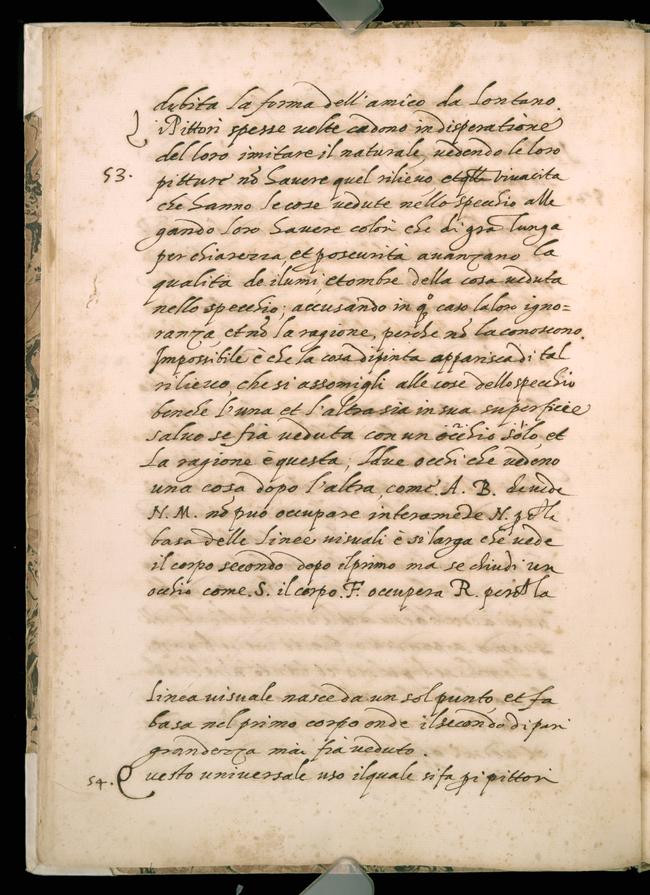 dubita la forma dell'amico da lontano.
i Pittori spesse volte cadono in disperatione
del loro imitare il naturale, vedendo le loro
53. pitture nõ havere quel rilievo et vivacita
che hanno le cose vedute nello specchio alle
gando loro havere colori che di gra lunga
per chiarezza, et poscurita avanzano la
qualita de i lumi, et ombre della cosa veduta
nello specchio; accusando in caso la loro igno=
ranza et nõ la ragione, perche nõ la conoscono.
Impossibile è che la cosa dipinta apparisca di tal
rilievo che si assomigli alle cose dello specchio
benche l'una et l'altra sia in sua superficie
salvo se fia veduta con un occhio solo, et
La ragione è questa; I due occhi che vedono
una cosa dopo l'altra, come A. B. che vede
N. M. nõ può occupare interamẽte N.
basa delle linee visuali è si larga che vede
il corpo secondo dopo il primo ma se chiudi un
occhio come. S. il corpo. F. occupera R. la
linea visuale nasce da un sol punto, et fa
basa nel primo corpo onde il secondo di pari
grandezza mai fia veduto.
54. Questo universale uso il quale si fa pi pittori